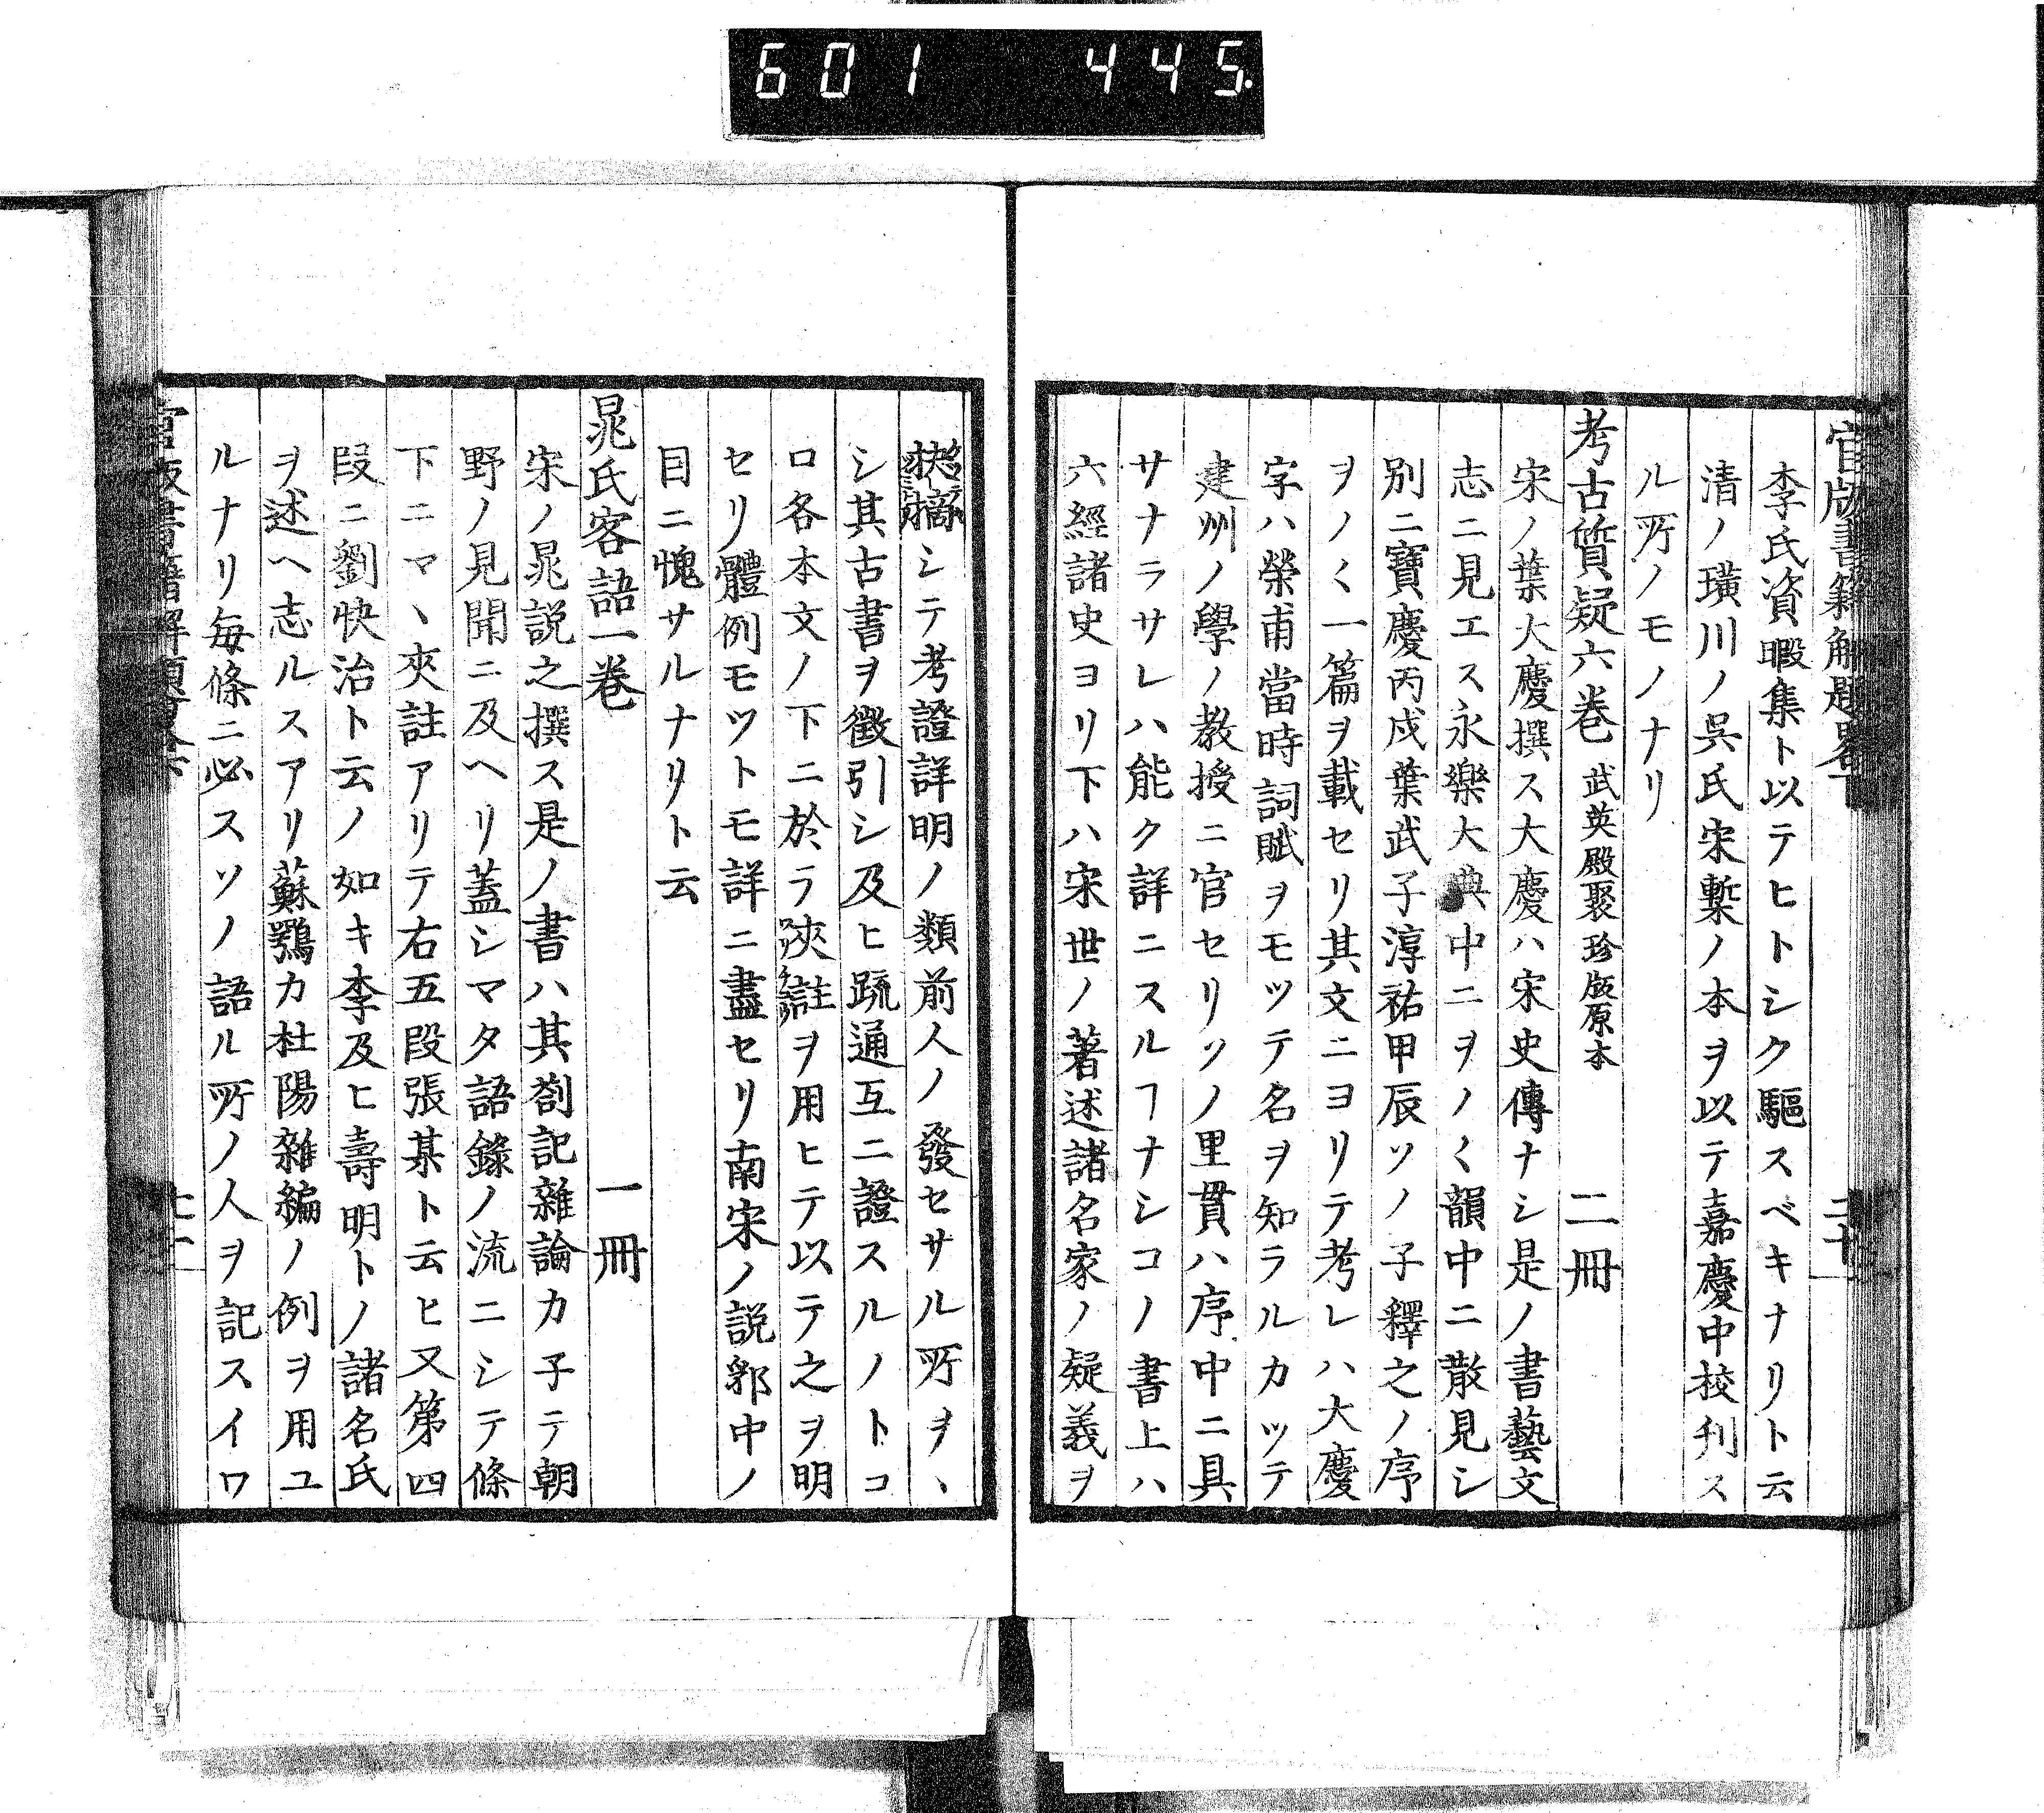 601 445.
官版書籍解題畧下 二十
李氏資暇集ト以テヒトシク驅スベキナリト云
清ノ璜川ノ呉氏宋槧ノ本ヲ以テ嘉慶中校刋ス
ル所ノモノナリ
考古質疑六卷 武英殿聚珍版原本 二冊
宋ノ葉大慶撰ス大慶ハ宋史傳ナシ是ノ書藝文
志ニ見エス永樂大典中ニヲノ〱韻中ニ散見シ
別ニ寶慶丙戍葉武子淳祐甲辰ソノ子釋之ノ序
ヲノ〱一篇ヲ載セリ其文ニヨリテ考レハ大慶
字ハ榮甫當時詞賦ヲモツテ名ヲ知ラルカツテ
建州ノ學ノ教授ニ官セリソノ里貫ハ序中ニ具
サナラサレハ能ク詳ニスルヿナシコノ書上ハ
六經諸史ヨリ下ハ宋世ノ著述諸名家ノ疑義ヲ
抉摘シテ考證詳明ノ類前人ノ發セサル所ヲヽ
シ其古書ヲ徵引シ及ヒ疏通互ニ證スルノトコ
ロ各本文ノ下ニ於ラ陝註ヲ用ヒテ以テ之ヲ明
セリ體例モツトモ詳ニ盡セリ南宋ノ説郛中ノ
目ニ愧サルナリト云
晁氏客語一卷 一冊
宋ノ晁説之撰ス是ノ書ハ其劄記雜論カ子テ朝
野ノ見聞ニ及ヘリ蓋シマタ語錄ノ流ニシテ條
下ニマヽ夾註アリテ右五段張某ト云ヒ又第四
段ニ劉快治ト云ノ如キ李及ヒ壽明トノ諸名氏
ヲ述ヘ志ルスアリ蘇鶚カ杜陽雜編ノ例ヲ用ユ
ルナリ毎條ニ必スソノ語ル所ノ人ヲ記スイワ
官版書籍解題畧下